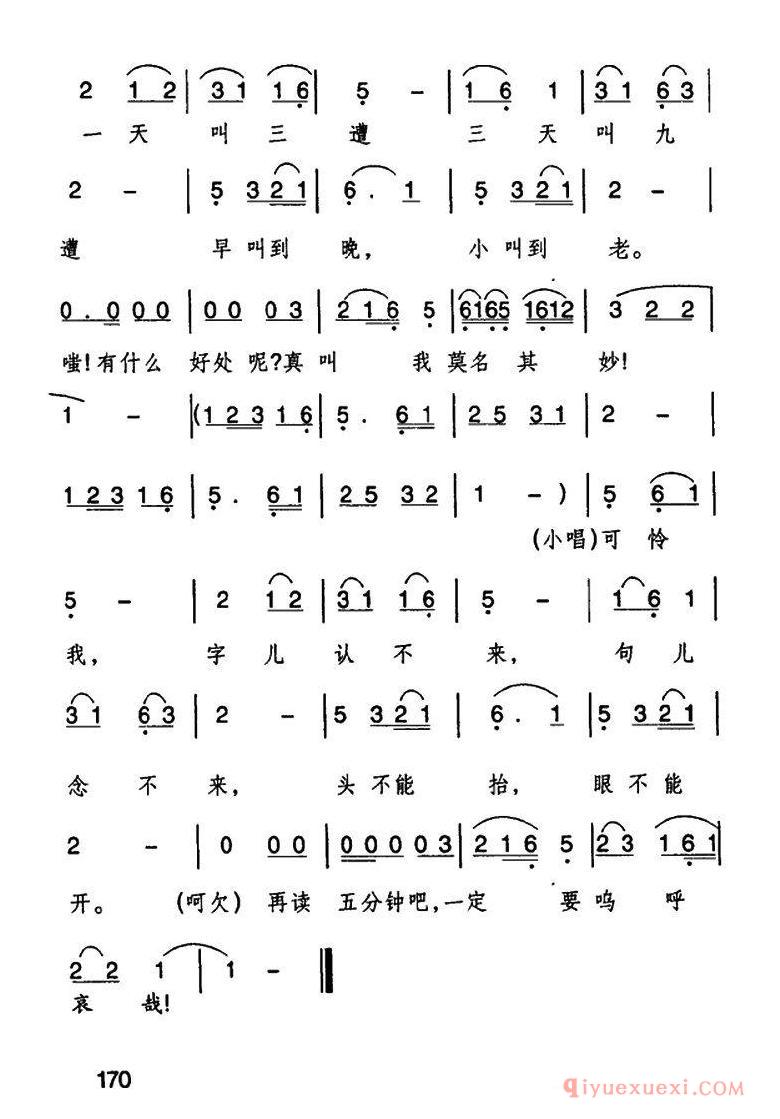 2 1 2 | 3 1 1 6 | 5 - | 1 6 1 | 3 1 6 3 |
一 天 叫 三 遭 三 天 叫 九
2 - | 5 3 2 1 | 6 . 1 | 5 3 2 1 | 2 - |
遭 早 叫 到 晚, 小 叫 到 老。
0 . 0 0 0 | 0 0 0 3 | 2 1 6 5 | 6 1 6 5 1 6 1 2 | 3 2 2 |
嗤! 有 什 么 好 处 呢? 真 叫 我 莫 名 其 妙!
1 - | ( 1 2 3 1 6 | 5 . 6 1 | 2 5 3 1 | 2 - |
1 2 3 1 6 | 5 . 6 1 | 2 5 3 2 | 1 - ) | 5 6 1 |
(小唱) 可 怜
5 - | 2 1 2 | 3 1 1 6 | 5 - | 1 6 1 |
我, 字 儿 认 不 来, 句 儿
3 1 6 3 | 2 - | 5 3 2 1 | 6 . 1 | 5 3 2 1 |
念 不 来, 头 不 能 抬, 眼 不 能
2 - | 0 0 0 | 0 0 0 0 3 | 2 1 6 5 | 2 3 1 6 1 |
开。 (呵欠) 再 读 五 分 钟 吧, 一 定 要 呜 呼
2 2 1 | 1 - ‖
哀 哉!
170
qiyuexuexi.com